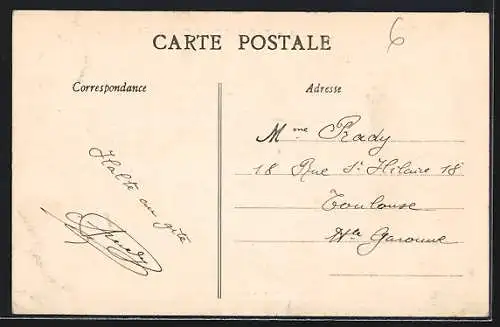 6
CARTE POSTALE
Correspondance
Adresse
Halte au gîte
Mme Prady
18 Rue St Hilaire 18
Toulouse
Hte Garonne